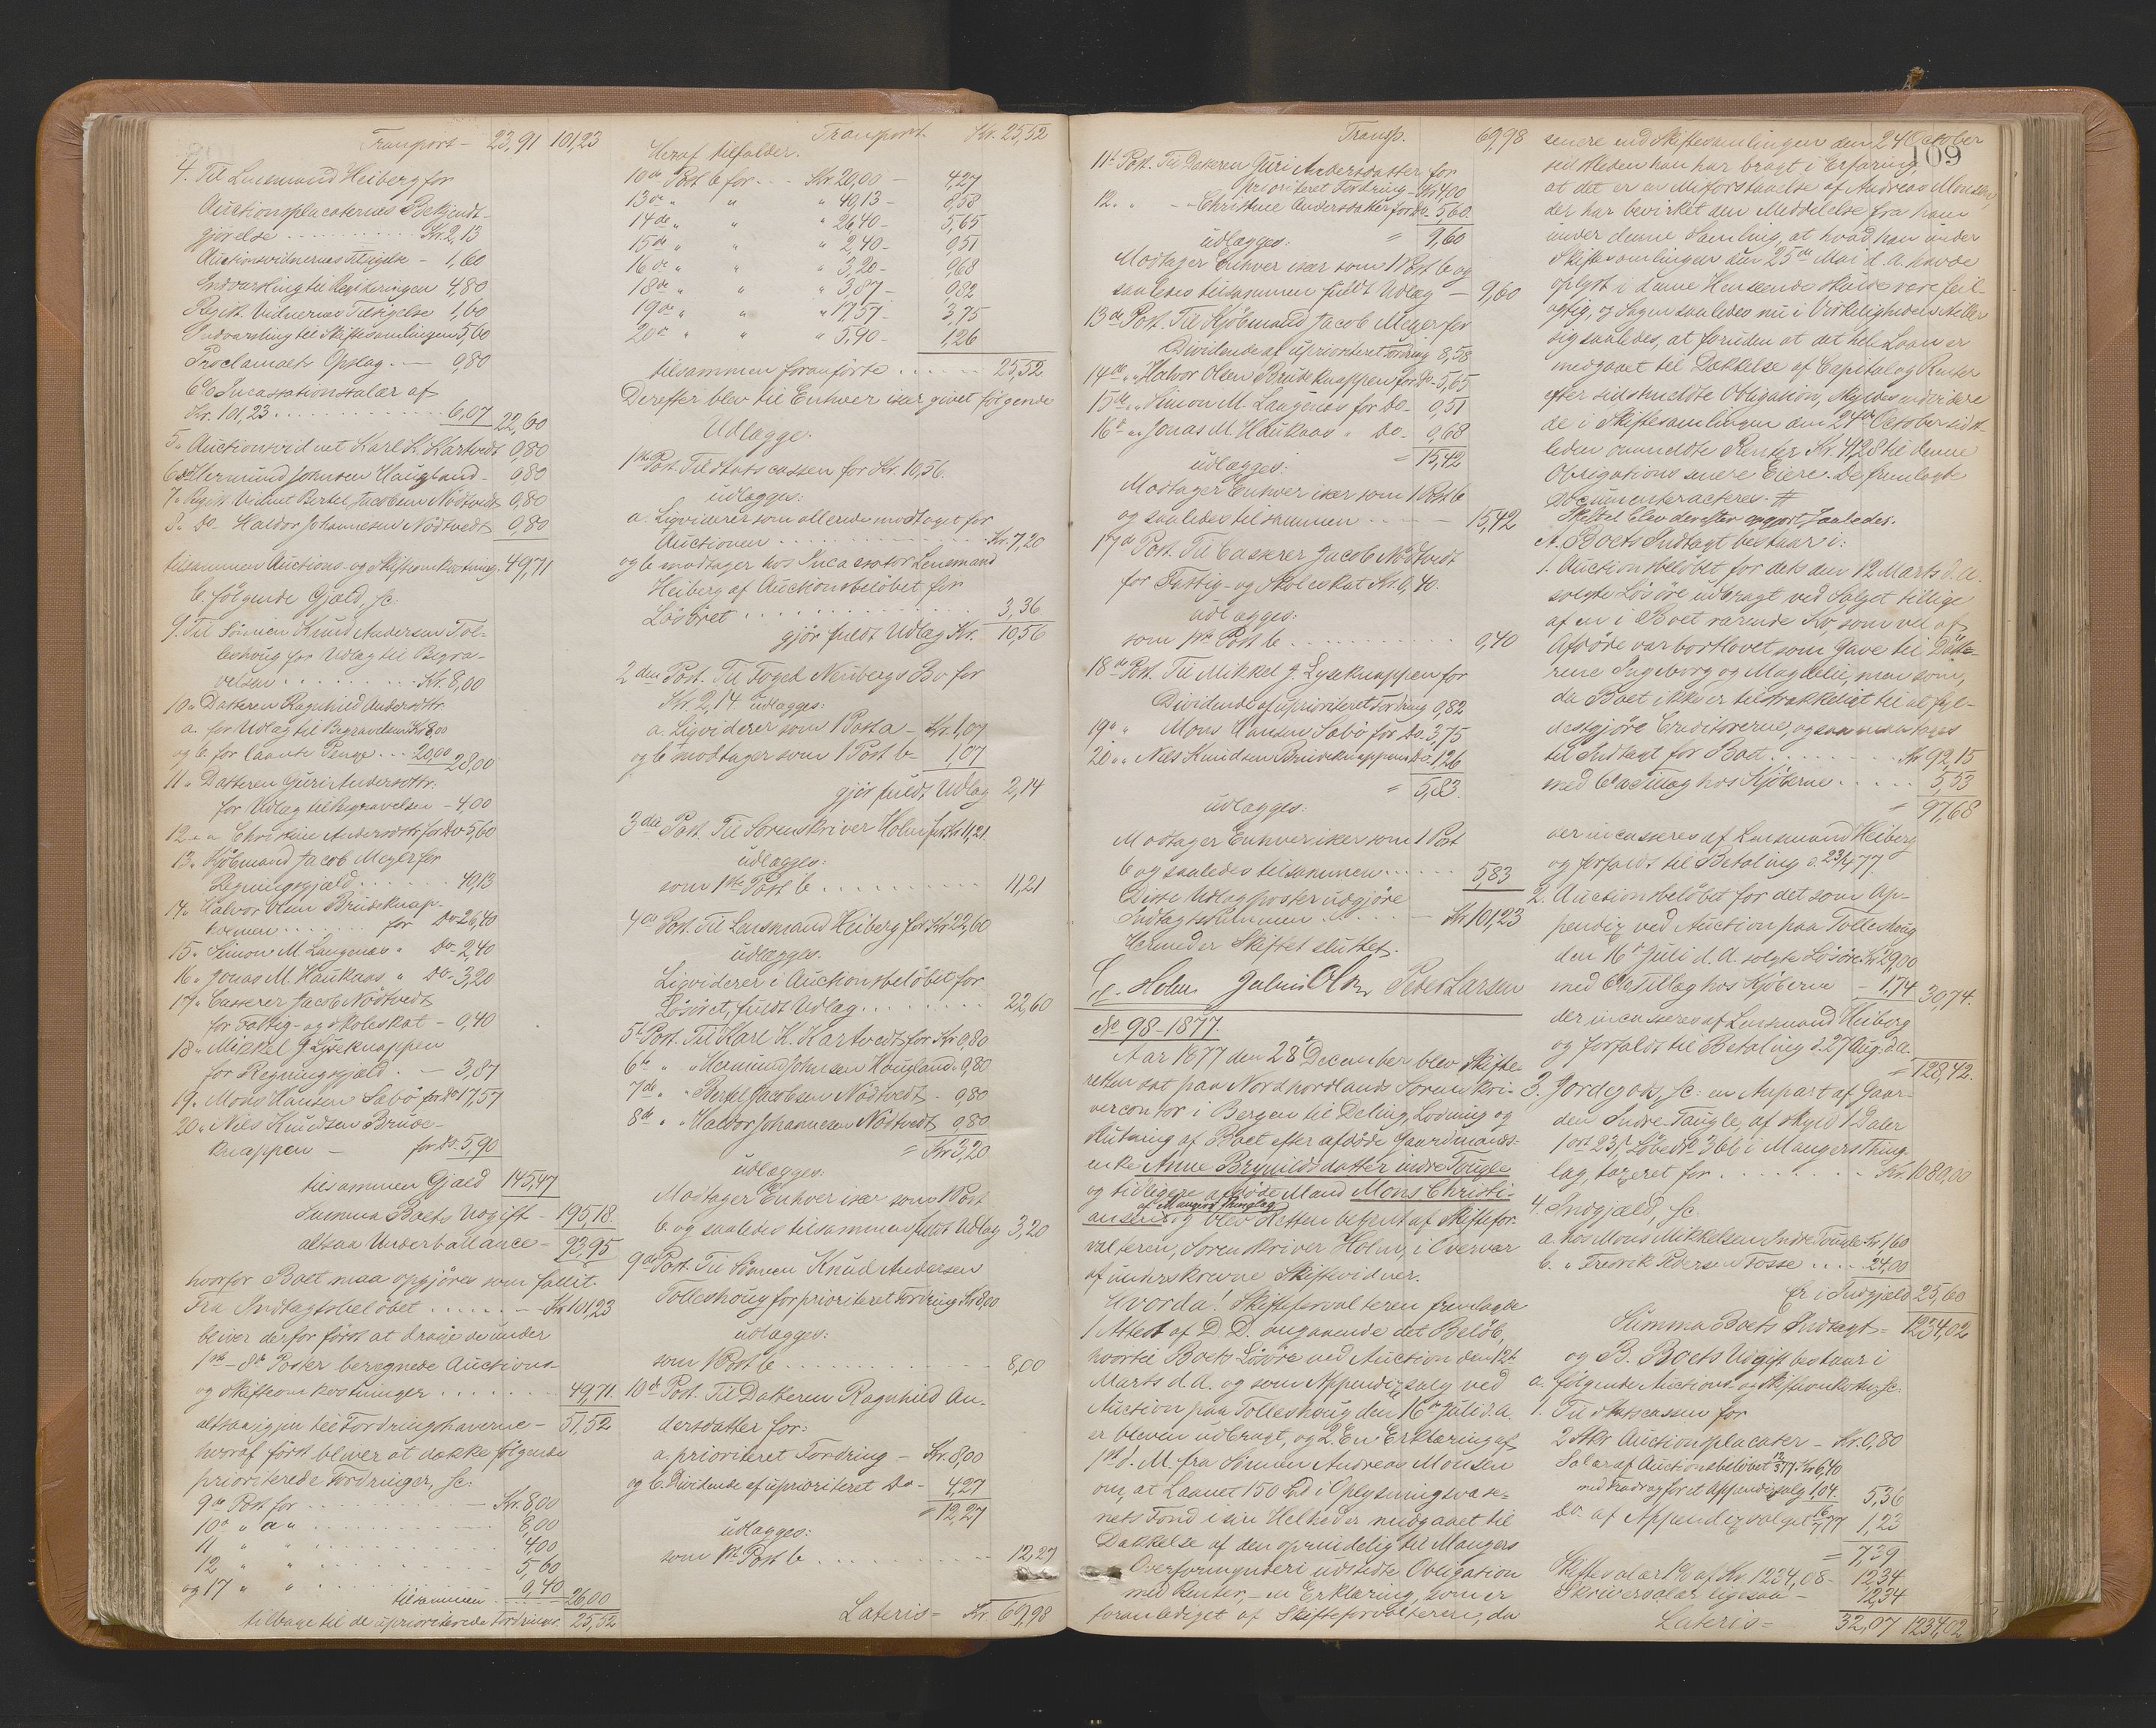 Transport - 23,91 101,23
4. Til Lensmand Heiberg for
Auctionsplacaternes Bekjendt-
gjørelse . . . . . . Kr. 2,13
Auctionsvidnernes Tilsigelse - 1,60
Indvarsling til Registeringen 4,80
Regist. Vidnernes Tilsigelse 1,60
Indvarsling til Skiftesamlingen 5,60
Proclamaets Opslag. — 0,80
6% Incassationssalær af
Kr. 101,23 . . . . . . 6,07 22,60
5. Auctionsvidnet Karl K. Hartvedt 0,80
6. do Hermund Johnsen Haugland - 0,80
7. Regist. Vidnet Bertel Jacobsen Nödtvedt 0,80
8. Do - Haldor Johannesen Nödtvedt 0,80
tilsammen Auctions- og Skifteomkostning. 49,71
b. følgende Gjæld, sc:
9. Til Sönnen Knud Andersen Tol-
leshoug for Udlæg til Begra-
velsen . . . . . . Kr. 8,00
10. Datteren Ragnhild Andersdttr.
a. for Udlæg til Begravelsen Kr 8,00
og b. for laante Penge . . 20,00 28,00
11. Datteren Guri Andersdttr:
for Udlæg til Begravelsen - 4,00
12. " Christine Andersdttr for Do 5,60
13. Kjöbmand Jacob Meyer for
Regningsgjæld . . . . . 40,13
14. Halvor Olsen Brudeknap-
for Do 26,40
15. Simon M. Langenæs " Do - 2,40
16. Jonas M. Haukaas " Do - 3,20
17. Casserer Jacob Nödtvedt
for Fattig- og Skoleskat - 0,40
18. Mikkel J. Lyseknappen
for Regningsgjæld . — 3,87
19. Mons Hansen Sæbö for Do 17,57
20. Nils Knudsen Brude-
knappen — for Do. 5,90
tilsammen Gjæld 145,47
Summa Boets Udgift - 195,18
altsaa Underballance - 93,95
hvorfor Boet maa opgjöres som fallit.
Fra Indtægtsbelöbet . . . . . Kr 101,23
bliver derfor først at drage de under
1ste - 8de Poster beregnede Auctions-
og Skifteomkostninger . . . . . 49,71.
altsaa igjen til Fordringshaverne - 51,52
hvoraf først bliver at dække følgende
prioriterede Fordringer, sc:
9de Post for . . . . . — Kr. 8,00
10de " a " . . . . . 8,00
11 " " . . . . . 4,00
12 " " . . . . . 5,60
og 17 " " . . . . . 0,40
tilsammen . . . . 26,00
tilbage til de uprioriterede Fordringer 25,52
Transport Kr. 25,52
Heraf tilfalder.
10de Post b for . . - Kr. 20,00 — 4,27
13de " " " 40,13 — 8,58
14de " " " 26,40 — 5,65
15de " " " 2,40 - 0,51
16de " " " 3,20 - 0,68
18de " " " 3,87 - 0,82
19de " " " 17,57 - 3,75
20de " " " 5,90 - 1,26
tilsammen foranførte . . . . . 25,52.
Derefter blev til Enhver især givet følgende
Udlægge.
1ste Post. Til Statscassen for Kr. 10,56.
udlægges:
a. Liqviderer som allerede modtaget for
Auctionen . . . . . . . Kr. 7,20
og b. modtager hos Incassator Lensmand
Heiberg af Auctionsbelöbet for
Lösöret . . . . . . . 3,36
gjør fuldt Udlæg Kr. 10,56
2den Post. Til Foged Neübergs Bo for
Kr. 2,14 udlægges:
a. Liqviderer som 1 Post a - Kr. 1,07
og b. modtager som 1 Post b - 1,07
gjør fuldt Udlæg 2,14
3die Post. Til Sorenskriver Holm for Kr 11,21.
udlægges:
som 1ste Post b . . . . . . . 11,21
4de Post. Til Lensmand Heiberg for Kr 22,60
udlægges.
Liqviderer i Auctionsbelöbet for
Lösöret, fuldt Udlæg . . . . . 22,60
5te Post. Til Karl K. Hartvedt for Kr 0,80
6te " " Hermund Johnsen Hougland. 0,80
7de " " Bertel Jacobsen Nödtvedt - 0,80
8de " " Haldor Johannesen Nödtvedt 0,80
= Kr 3,20
udlægges:
Modtager Enhver især som 1 Post
b. og saaledes tilsammen fuldt Udlæg 3,20
9de Post. Til Sönnen Knud Andersen
Tolleshoug for prioriteret Fordring Kr 8,00
udlægges:
som 1 Post b . . . . . . . 8,00
10de Post. Til Datteren Ragnhild An-
dersdatter for:
a. prioriteret Fordring — Kr. 8,00
og b. Dividende af uprioriteret Do - 4,27
= 12,27
udlægges:
som 1ste Post b . . . . . . . 12,27
Lateris - Kr 69,98
Transp. 69,98
11te Post. Til Datteren Guri Andersdatter for
prioriteret Fordring - Kr 4,00
12. " - " Christine Andersdatter for Do - 5,60.
= 9,60
udlægges:
Modtager Enhver især som 1 Post b og
saaledes tilsammen fuldt Udlæg — 9,60
13de Post. Til Kjöbmand Jacob Meyer for
Dividende af uprioriteret Fordring 8,58
14de " " Halvor Olsen Brudeknappen for Do - 5,65
15de " " Simon M. Langenæs for Do - 0,51
16de " " Jonas M. Haukaas " Do - 0,68
= 15,42
udlægges:
Modtager Enhver især som 1 Post b
og saaledes tilsammen . . . — 15,42
17de Post. Til Casserer Jacob Nödtvedt
for Fattig- og Skoleskat Kr. 0,40.
udlægges:
som 1ste Post b . . . . . . . 0,40
18de Post. Til Mikkel J. Lyseknappen for
Dividende af uprioriteret Fordring 0,82
19de " Mons Hansen Sæbö for Do. 3,75
20 " " Nils Knudsen Brudeknappen Do - 1,26
= 5,83.
udlægges:
Modtager Enhver især som 1 Post
b og saaledes tilsammen . . . . 5,83
Disse Udlægsposter udgjöre
Indtægtssummen . . . . — Kr. 101,23
Hermed er Skiftet sluttet.
Holm Julius Olsen Peder Larsen
No 98 - 1877.
Aar 1877 den 28de December blev Skifte-
retten sat paa Nordhordlands Sorenskri-
vercontor i Bergen til Deling, Lodning og
Slutning af Boet efter afdöde Gaardmands-
enke Anne Brynildsdatter indre Tougle
og tidligere afdöde Mand Mons Christi-
af Mangers Thinglag
ansen; og blev Retten betjent af Skiftefor-
valteren, Sorenskriver Holm, i Overvær
af underskrevne Skiftevidner.
Hvorda! Skifteforvalteren fremlagde
1 Attest af D. D. angaaende det Beløb,
hvortil Boets Lösöre ved Auction den 12te
Marts d. A. og som Appendixsalg ved
Auction paa Tolleshoug den 16de Juli d. A.
er bleven udbragt, og 2. En Erklæring af
1ste d. M. fra Sönnen Andreas Monsen
om, at Laanet 150 Spd i Oplysningsvæse-
nets Fond i sin Helhed er medgaaet til
Dækkelse af den oprindelig til Mangers
Overformynderi udstedte Obligation
med Renter, - en Erklæring, som er
foranlediget af Skifteforvalteren, da
109
senere end Skiftesamlingen den 24 October
sidstleden han har bragt i Erfaring,
at det er en Misforstaaelse af Andreas Monsen,
der har bevirket den Meddelelse fra ham
under denne Samling, at hvad han under
Skiftesamlingen den 25de Mai d. A. havde
oplyst i denne Henseende skulde være feil-
agtig, og Sagen saaledes nu i Virkeligheden stiller
sig saaledes, at foruden at det hele Laan er
medgaaet til Dækkelse af Capital og Renter
efter sidstmeldte Obligation, skyldes endvidere
de i Skiftesamlingen den 24de October sidst-
leden anmeldte Renter Kr. 41,28 til denne
Obligations senere Eiere. De fremlagte
Documenter acteres. #
Skiftet blev derefter opgjort saaledes.
A. Boets Indtægt bestaar i:
1. Auctionsbelöbet for dets den 12 Marts d. A.
solgte Lösöre udbragt ved Salget tillige
af en i Boet værende Ko, som vel af
Afdöde var bortlovet som Gave til Döt-
rene Ingeborg og Magdeli, men som,
da Boet ikke er tilstrækkeligt til at fyl-
destgjöre Creditorerne, ogsaa maa tages
til Indtægt for Boet . . . . . Kr 92,15
med 6% Tillæg hos Kjöberne . . . . 5,53
= 97,68
der incasseres af Lensmand Heiberg
og forfaldt til Betaling d. 23/4 77.
2. Auctionsbelöbet for det som Ap-
pendix ved Auction paa Tolleshoug
den 16de Juli d. A. solgte Lösöre Kr 29,00
med 6% Tillæg hos Kjöberne — 1,74 30,74.
der incasseres af Lensmand Heiberg
og forfaldt til Betaling d. 27 Aug. d. A.
= 128,42.
3. Jordegods, sc: en Anpart af Gaar-
den Indre Tougle, af Skyld 1 Daler
1 ort 23 s, Löbe No 366 i Mangers Thing-
lag, taxeret for . . . . . . . Kr. 1080,00
4. Indgjæld, sc:
a. hos Mons Mikkelsen Indre Tougle Kr 1,60
b. " Fredrik Pedersen Fosse . . . . 24,00
Er i Indgjæld 25,60
Summa Boets Indtægt = 1234,02
og B. Boets Udgift bestaar i
a. følgende Auctions- og Skifteomkostn. sc:
1. Til Statscassen for
2 Stkr Auctionsplacater - Kr. 0,80
Salær af Auctionsbelöbet 12/3 77. Kr 6,40
med Fradrag for et Appendixsalg 1,04. 5,36
Do. af Appendixsalget 16/7 77 1,23
= 7,39
Skiftesalær 1% af Kr. 1234,08 - 12,34
Skriversalær ligesaa - 12,34
Lateris = 32,07 1234,02